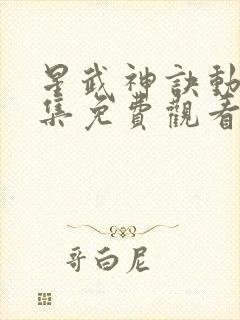 星武神訣動
集免費觀看
哥白尼